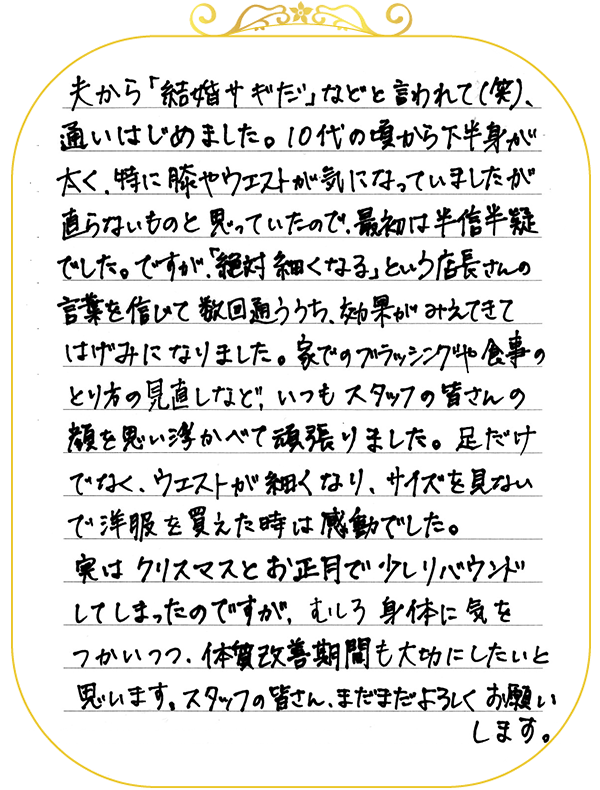 夫から「結婚サギだ」などと言われて(笑)、
通いはじめました。10代の頃から下半身が
太く、特に膝やウエストが気になっていましたが
直らないものと思っていたので、最初は半信半疑
でした。ですが、「絶対細くなる」という店長さんの
言葉を信じて数回通ううち、効果がみえてきて
はげみになりました。家でのブラッシングや食事の
とり方の見直しなど、いつもスタッフの皆さんの
顔を思い浮かべて頑張りました。足だけ
でなく、ウエストが細くなり、サイズを見ない
で洋服を買えた時は感動でした。
実はクリスマスとお正月で少しリバウンド
してしまったのですが、むしろ身体に気を
つかいつつ、体質改善期間も大切にしたいと
思います。スタッフの皆さん、まだまだよろしくお願い
します。